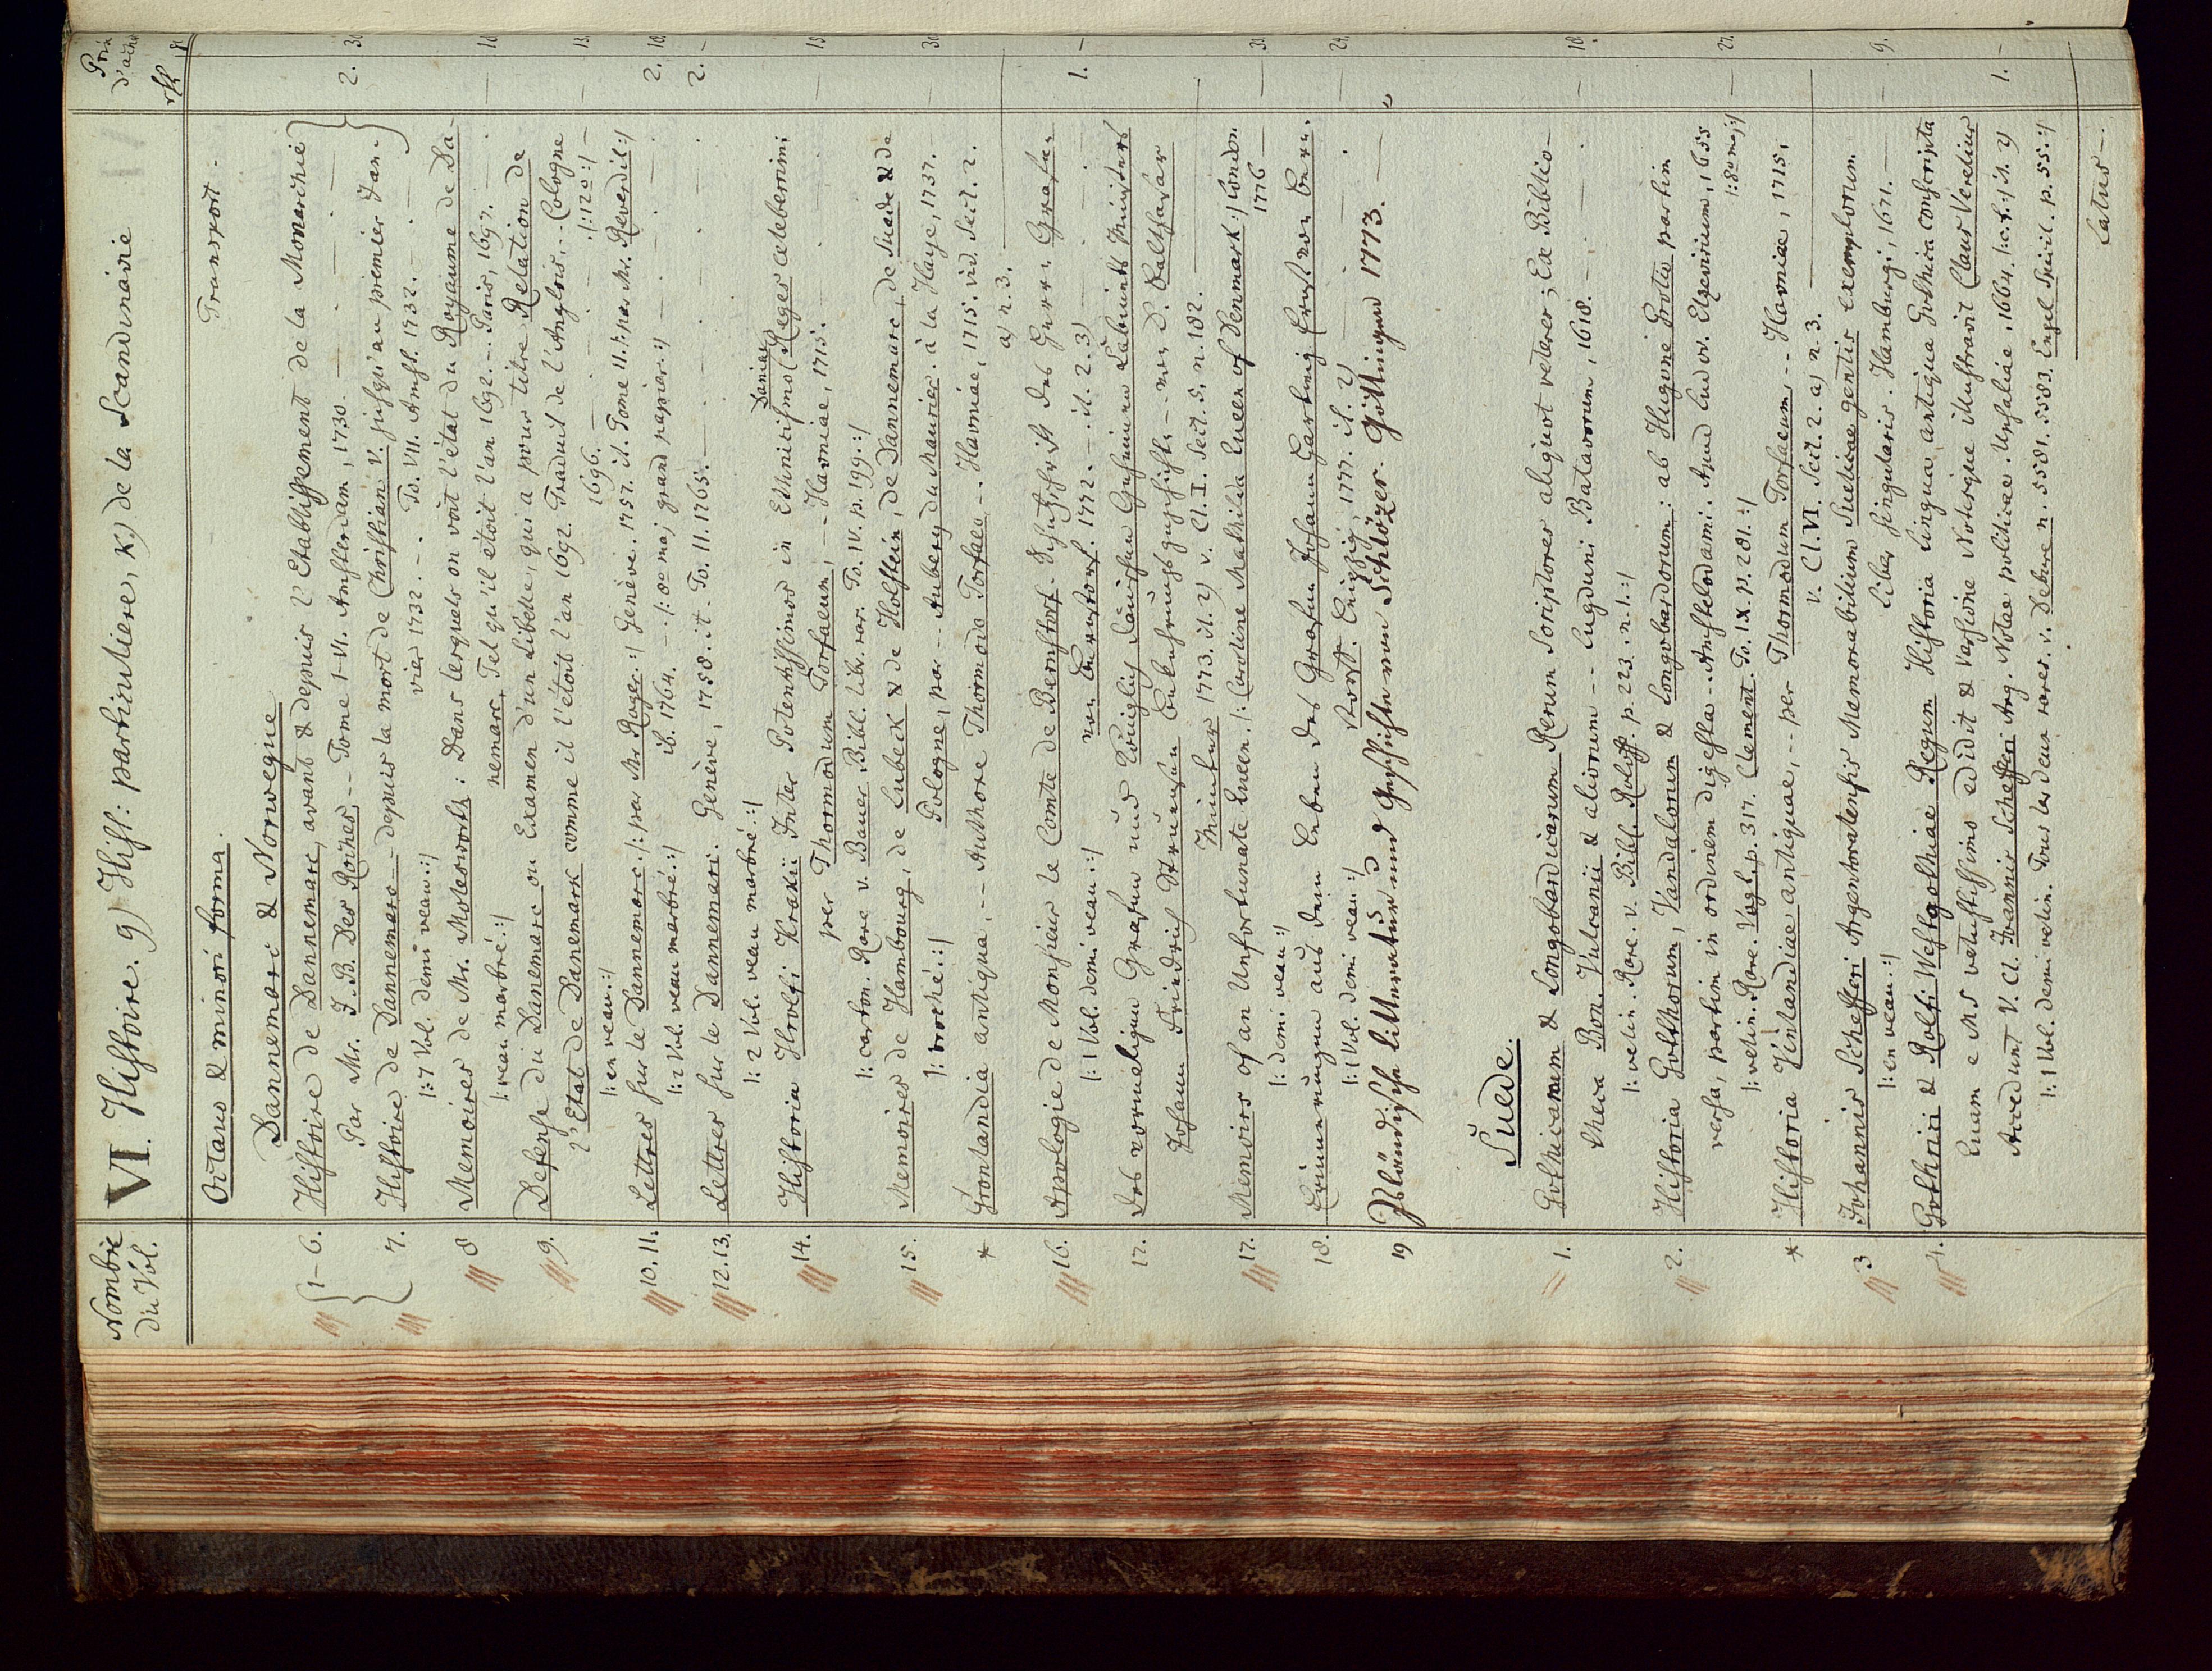 Nombre du Vol.
VI. Histoire. 9) Hist: particuliere, K) de la Scandinavie
Prix d'achat
rth gl
Octavo & minori forma.
Transport
Dannemarc & Norwegue
1-6. Histoire de Dannemarc, avant & depuis l'Etablissement de la Monarchie
Par Mr. J. B. Des Roches -- Tome I-VI. Amsterdam, 1730. 2. 30
7. Histoire de Dannemarc -- depuis la mort de Christian V. jusqu'au premier Jan-
vier 1732. -. To. VII. Amst. 1732.
|: 7 Vol. demi veau :|
8 Memoires de Mr. Molesworth: Dans lesquels on voit l'état du Royaume de Da-
nemarc, Tel qu'il étoit l'an 1692. -. Paris, 1697.
|: veau marbré :|
9. Defense du Danemarc ou Examen d'un Libelle, qui a pour titre Relation de
l'Etat de Danemark comme il l'étoit l'an 1692. Traduit de l'Anglois -. Cologne
1696. |: 12o :|
|: en veau :|
10. 11. Lettres sur le Dannemarc. |: par Mr. Roger :| Genève. 1757. it. Tome II. |: par Mr. Reverdil :|
ib. 1764. -. |: 8o maj grand papier :| 2.
|: 2 Vol. veau marbré :|
12. 13. Lettres sur le Dannemarc. Genève, 1758. it. To. II. 1765. 2. -
|: 2 Vol. veau marbré :|
14. Historia Hrolfi Krakii Inter Potentissimos in Ethnicismo Daniae Reges celeberrimi
per Thormodum Torfaeum, -- Havniae, 1715.
|: carton. Rare v. Bauer Bibl. libr. rar. To. IV. p. 199 :|
15. Memoires de Hambourg, de Lubeck & de Holstein, de Dannemarc, de Suede & de
Pologne, par -- Aubery du Maurier. à la Haye, 1737. 30
|: broché :|
* Gronlandia antiqua, -- Authore Thormodo Torfaeo -. Havniae, 1715. vid. Sect. 2.
a) n. 3.
16. Apologie de Monsieur le Comte de Bernstorf. Schutzschrift des Herrn Grafen
von Bernstorf. 1772. -. it. 2. 3) 1. -
|: 1 Vol. demi veau :|
17. Des vormaligen Grafen und Königlich Dänischen Geheimen Cabinets Ministers
Johann Friedrich Struensen Bekehrungsgeschichte -- von D. Balthasar
Münter 1773. it. 2) v. Cl. I. Sect. 5. n. 182.
17. Memoirs of an Unfortunate Queen. |: Caroline Mathilda Queen of Denmark :| London
1776
|: demi veau :|
18. Erinnerungen aus dem Leben des Grafen Johann Hartwig Ernst von Bern-
storff. Leipzig, 1777. it. 2)
|: 1 Vol. demi veau :|
19 Isländische Litteratur und Geschichte von Schlözer. Göttingen 1773.
Suede.
1. Gothicarum & Longobardicarum Rerum Scriptores aliquot veteres; Ex Biblio-
theca Bon. Vulcanii & aliorum -- Lugduni Batavorum, 1618.
|: velin. Rare. v. Bibl. Roloff. p. 223. n. 1. :|
2. Historia Gotthorum, Vandalorum & Longobardorum: ab Hugone Grotio partim
versa, partim in ordinem digesta -. Amstelodami. Apud Ludov. Elzevirium, 1655
|: 8o maj :|
|: velin. Rare. Vogt. p. 317. Clement. To. IX. p. 281. :|
* Historia Vinlandiae antiquae, -- per Thormodum Torfaeum -. Havniae, 1715.
v. Cl. VI. Sect. 2. a) n. 3.
3 Johannis Schefferi Argentoratensis Memorabilium Suedicae gentis exemplorum
liber singularis. Hamburgi, 1671. 9.
|: en veau :|
4. Gothrici & Rolfi Westgothiae Regum Historia lingua antiqua Gothica conscripta
Quam e MS vetustissimo edidit & Versione Notisque illustravit Olaus Verelius
Accedunt V. Cl. Joannis Schefferi Arg. Notae politicae. Upsaliae, 1664. |: c. f. :| it. 2) 1. -
|: 1 Vol. demi velin. Tous les deux rares. v. Debure n. 5581. 5583. Engel Spicil. p. 55. :|
Latus -.